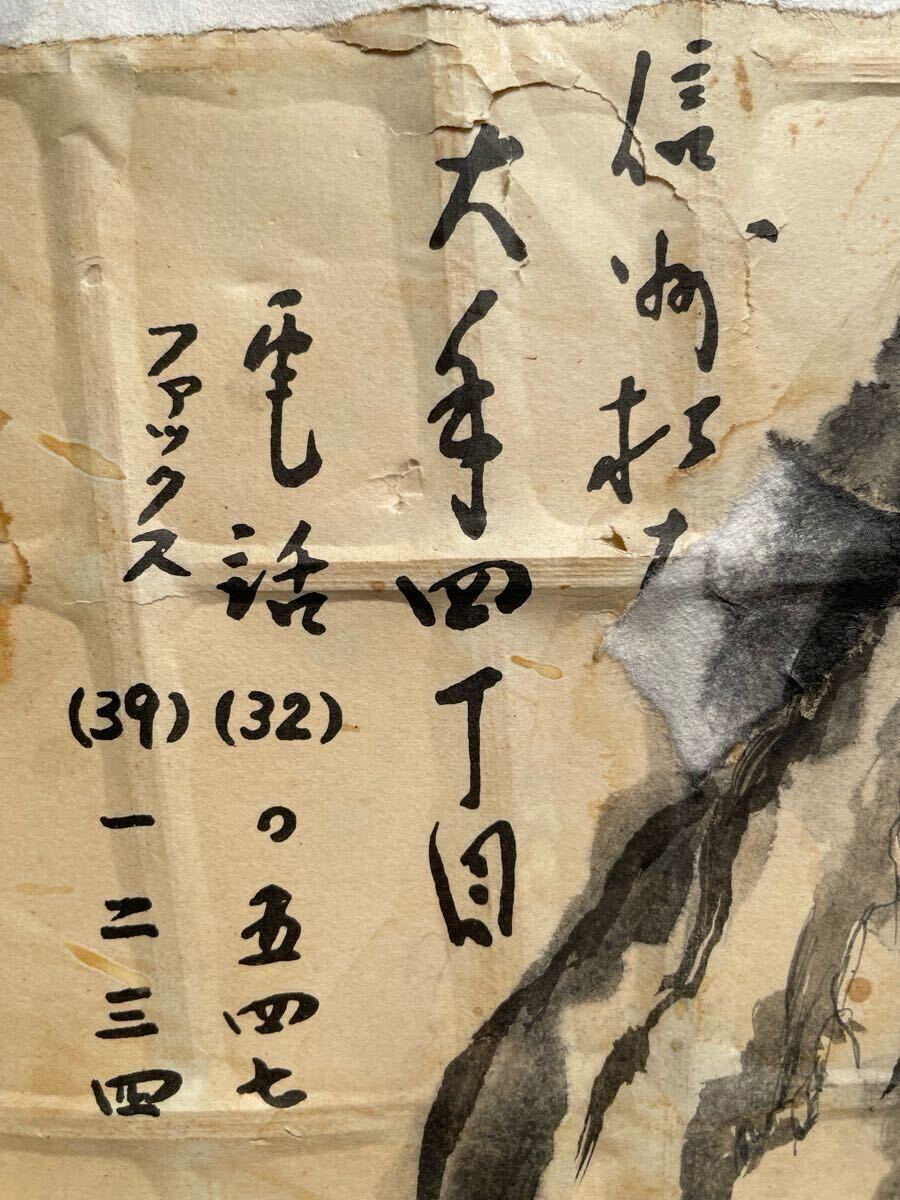 信州松
大手四丁目
電話(32)〇五四七
ファックス(39)一二三四